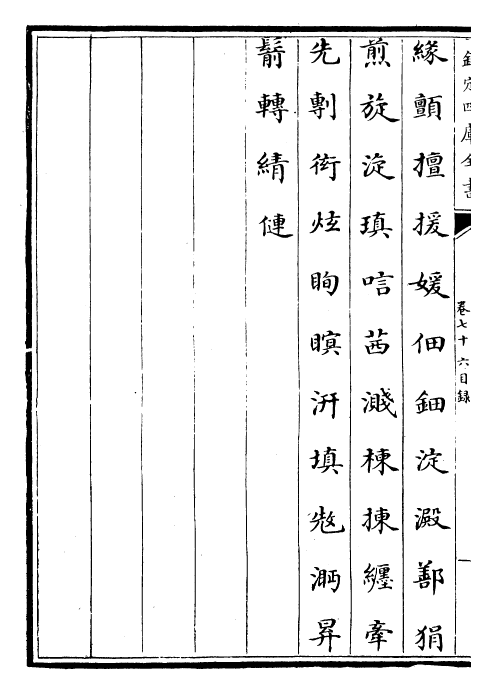 欽定四庫全書
卷七十六目錄
緣顫擅援媛佃鈿淀澱鄯狷
煎旋淀瑱唁茜濺楝揀纏牽
先剸衒炫眴瞑汧填沔昇
鬋轉綪僆